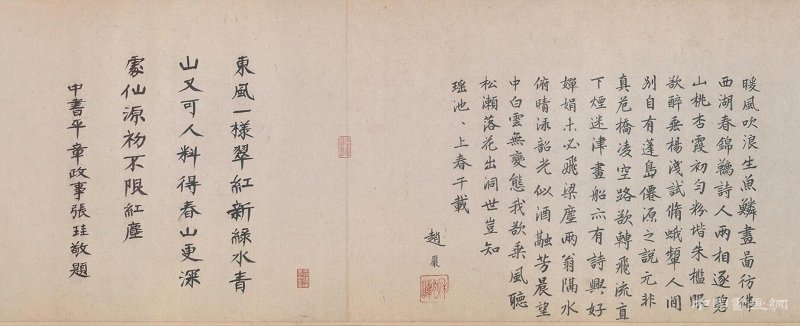 暖風吹浪生魚鱗畫啚彷彿
西湖春錦韉詩人兩相逐碧
山桃杏霞初勻粉堦朱檻眼
欲醉垂楊淺試脩蛾顰人間
別自有蓬島僊源之說元非
真危橋凌空路欲轉飛流直
下煙迷津畫船亦有詩興好
嬋娟未必飛梁塵兩翁隔水
俯晴淥韶光似酒融芳晨望
中白雲無變態我欲乘風聽
松瀨落花出洞世豈知
瑤池〻上春千載
趙巖
東風一樣翠紅新綠水青
山又可人料得春山更深
處仙源初不限紅塵
中書平章政事張珪敬題